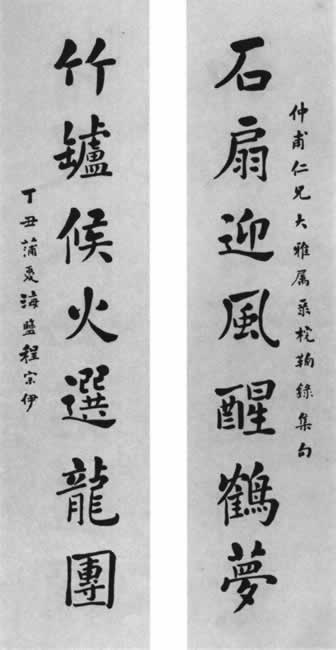 仲甫仁兄大雅属采梡鞠錄集句
石扇迎風醒鶴夢
竹罏候火選龍團
丁丑蒲夏海鹽程宗伊